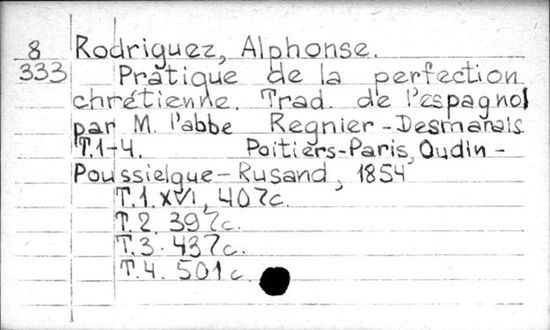 8
333
Rodriguez, Alphonse.
Pratique de la perfection
chrétienne. Trad. de l'espagnol
par M. l'abbe Regnier-Desmarais
T.1-4. Poitiers-Paris, Oudin-
Poussielgue-Rusand, 1854
T.1. XVI, 407c.
T.2. 397c.
T.3. 437c.
T.4. 501c.